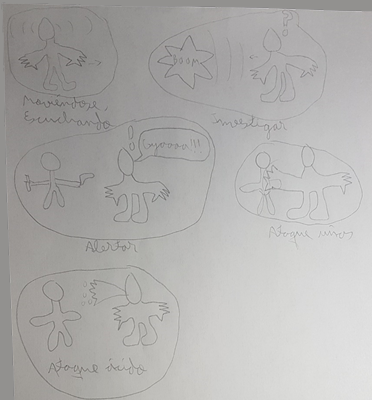 Moviendose,
Escuchando
?
BOOM
investigar
Gyaaaa!!!
Alertar
Ataque uñas
Ataque ácido